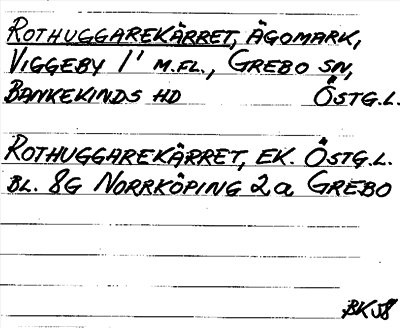 ROTHUGGAREKÄRRET, ÄGOMARK,
VIGGEBY 1' M.FL., GREBO SN,
BANKEKINDS HD ÖSTG.L.
ROTHUGGAREKÄRRET, EK. ÖSTG.L.
BL. 8G NORRKÖPING 2a GREBO
BK58